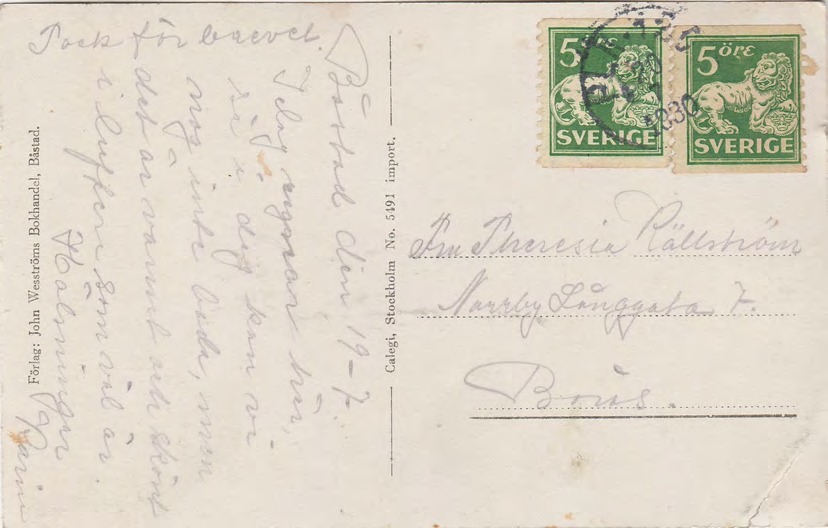 Tack för brevet.
Båstad den 19-7.
I dag regnar här,
så i dag kan vi
nog inte bada, men
det är varmt och skönt
i luften som väl är.
Hälsningar
Karin
Förlag: John Wesströms Bokhandel, Båstad.
Calegi, Stockholm No. 5491 import.
5 ÖRE
SVERIGE
5 ÖRE
SVERIGE
Fru Theresia Källström
Norrby Långgata 7.
Borås.